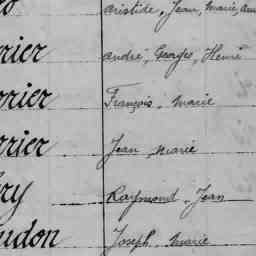 Aristide, Jean, Marie,
rier André, Georges, Henri
rrier François, Marie
rrier Jean, Marie
ry Raymond, Jean
udon Joseph, Marie